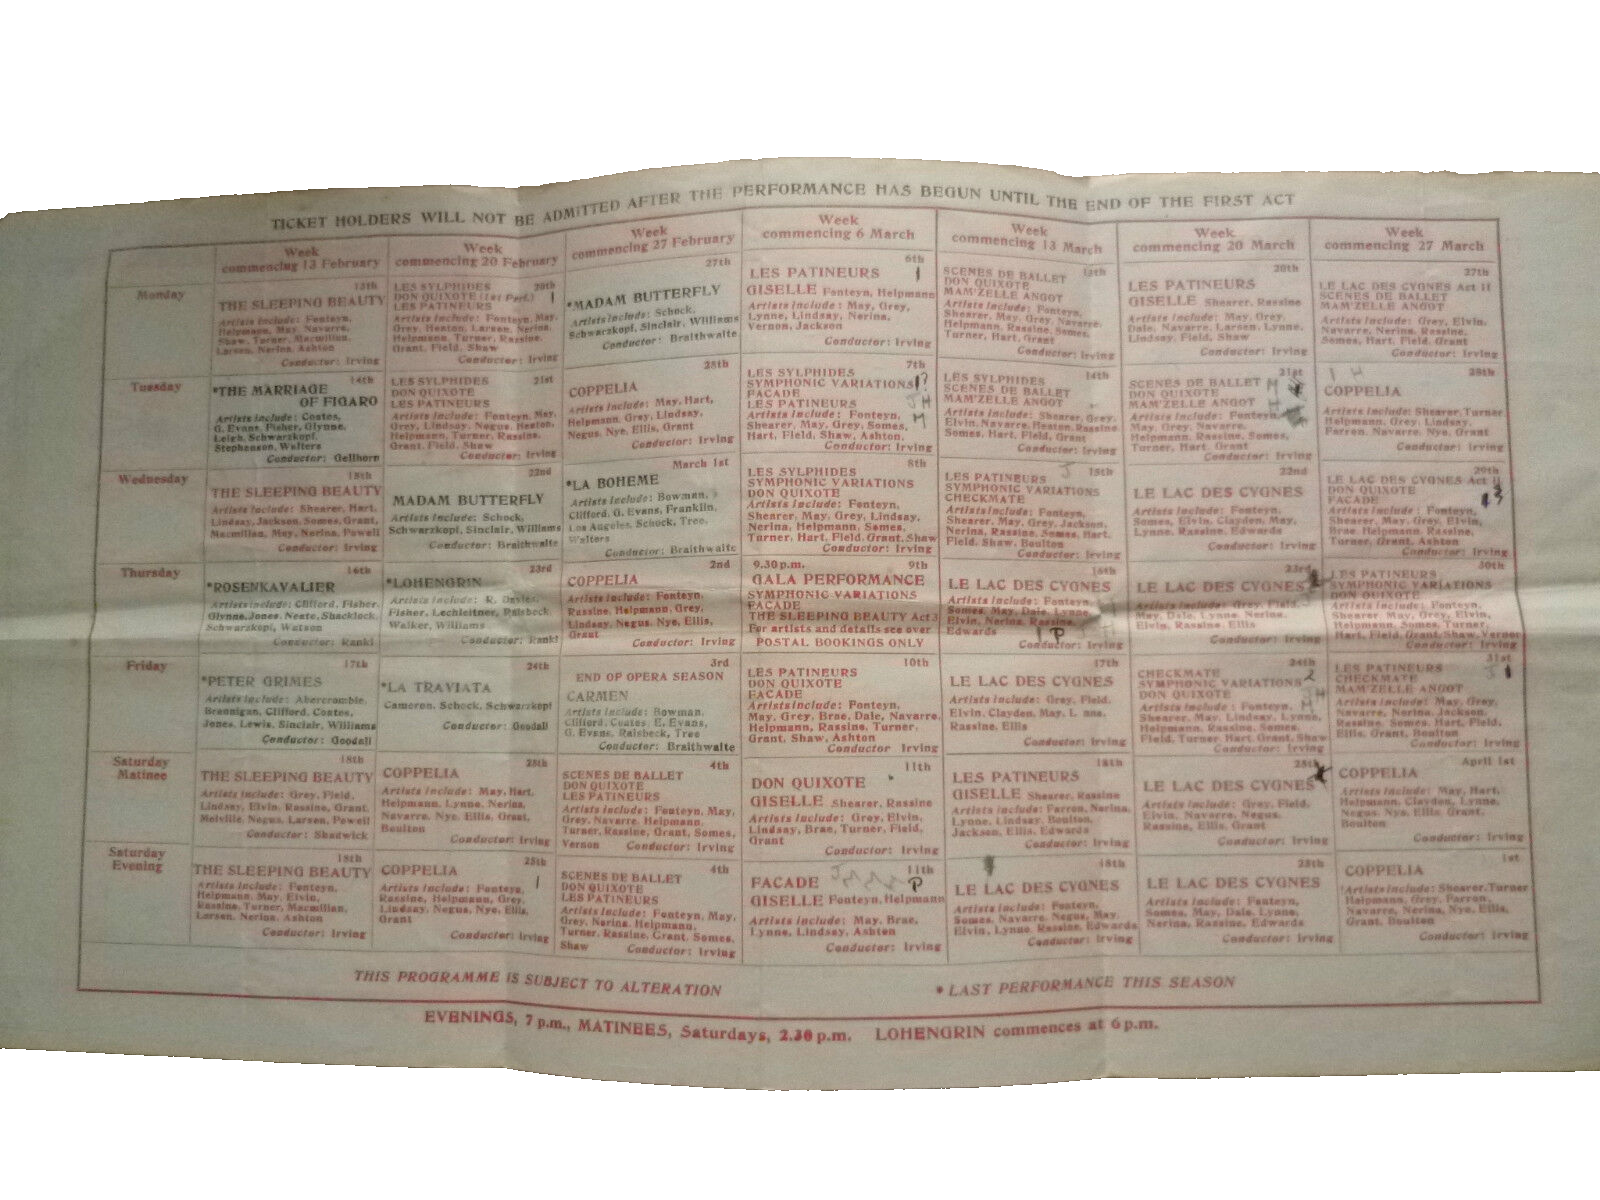 TICKET HOLDERS WILL NOT BE ADMITTED AFTER THE PERFORMANCE HAS BEGUN UNTIL THE END OF THE FIRST ACT
Week commencing 13 February
Week commencing 20 February
Week commencing 27 February
Week commencing 6 March
Week commencing 13 March
Week commencing 20 March
Week commencing 27 March
Monday
13th
THE SLEEPING BEAUTY
Artists include: Fonteyn,
Helpmann, May, Navarre,
Shaw, Turner, Macmillan,
Larsen, Nerina, Ashton
Conductor: Irving
LES SYLPHIDES 20th
DON QUIXOTE (1st Perf.) 1
LES PATINEURS
Artists include: Fonteyn, May,
Grey, Heaton, Larsen, Nerina,
Helpmann, Turner, Rassine,
Grant, Field, Shaw
Conductor: Irving
27th
*MADAM BUTTERFLY
Artists include: Schock,
Schwarzkopf, Sinclair, Williams
Conductor: Braithwaite
6th
LES PATINEURS 1
GISELLE Fonteyn, Helpmann
Artists include: May, Grey,
Lynne, Lindsay, Nerina,
Vernon, Jackson
Conductor: Irving
SCENES DE BALLET 13th
DON QUIXOTE
MAM'ZELLE ANGOT
Artists include: Fonteyn,
Shearer, May, Grey, Navarre,
Helpmann, Rassine, Somes,
Turner, Hart, Grant
Conductor: Irving
20th
LES PATINEURS
GISELLE Shearer, Rassine
Artists include: May, Grey,
Dale, Navarre, Larsen, Lynne,
Lindsay, Field, Shaw
Conductor: Irving
27th
LE LAC DES CYGNES Act II
SCENES DE BALLET
MAM'ZELLE ANGOT
Artists include: Grey, Elvin,
Navarre, Nerina, Rassine,
Somes, Hart, Field, Grant
Conductor: Irving
Tuesday
14th
*THE MARRIAGE
OF FIGARO
Artists include: Coates,
G. Evans, Fisher, Glynne,
Leigh, Schwarzkopf,
Stephenson, Walters
Conductor: Gellhorn
LES SYLPHIDES 21st
DON QUIXOTE
LES PATINEURS
Artists include: Fonteyn, May,
Grey, Lindsay, Negus, Heaton,
Helpmann, Turner, Rassine,
Grant
Conductor: Irving
28th
COPPELIA
Artists include: May, Hart,
Helpmann, Grey, Lindsay,
Negus, Nye, Ellis, Grant
Conductor: Irving
7th
LES SYLPHIDES
SYMPHONIC VARIATIONS 1?
FACADE
LES PATINEURS J H
Artists include: Fonteyn, M
Shearer, May, Grey, Somes,
Hart, Field, Shaw, Ashton,
Conductor: Irving
14th
LES SYLPHIDES
SCENES DE BALLET
MAM'ZELLE ANGOT
Artists include: Shearer, Grey,
Elvin, Navarre, Heaton, Rassine
Somes, Hart, Field, Grant
Conductor: Irving
21st
SCENES DE BALLET M
DON QUIXOTE
MAM'ZELLE ANGOT
Artists include: Fonteyn,
May, Grey, Navarre,
Helpmann, Rassine, Somes,
Turner, Hart, Grant
Conductor: Irving
1 H 28th
COPPELIA
Artists include: Shearer, Turner
Helpmann, Grey, Lindsay,
Farron, Navarre, Nye, Grant
Conductor: Irving
Wednesday
15th
THE SLEEPING BEAUTY
Artists include: Shearer, Hart,
Lindsay, Jackson, Somes, Grant,
Macmillan, May, Nerina, Powell
Conductor: Irving
22nd
MADAM BUTTERFLY
Artists include: Schock,
Schwarzkopf, Sinclair, Williams
Conductor: Braithwaite
March 1st
*LA BOHEME
Artists include: Bowman,
Clifford, G. Evans, Franklin,
Los Angeles, Schock, Tree,
Walters
Conductor: Braithwaite
8th
LES SYLPHIDES
SYMPHONIC VARIATIONS
DON QUIXOTE
Artists include: Fonteyn,
Shearer, May, Grey, Lindsay,
Nerina, Helpmann, Somes,
Turner, Hart, Field, Grant, Shaw
Conductor: Irving
J 15th
LES PATINEURS
SYMPHONIC VARIATIONS
CHECKMATE
Artists include: Fonteyn,
Shearer, May, Grey, Jackson,
Nerina, Rassine, Somes, Hart,
Field, Shaw, Boulton
Conductor: Irving
22nd
LE LAC DES CYGNES
Artists include: Fonteyn,
Somes, Elvin, Clayden, May,
Lynne, Rassine, Edwards
Conductor: Irving
29th
LE LAC DES CYGNES Act II
DON QUIXOTE
FACADE
Artists include: Fonteyn,
Shearer, May, Grey, Elvin,
Brae, Helpmann, Rassine,
Turner, Grant, Ashton
Conductor: Irving
Thursday
16th
*ROSENKAVALIER
Artists include: Clifford, Fisher,
Glynne, Jones, Neate, Shacklock,
Schwarzkopf, Watson
Conductor: Rankl
23rd
*LOHENGRIN
Artists include: R. Davies,
Fisher, Lechleitner, Raisbeck,
Walker, Williams
Conductor: Rankl
2nd
COPPELIA
Artists include: Fonteyn,
Rassine, Helpmann, Grey,
Lindsay, Negus, Nye, Ellis,
Grant
Conductor: Irving
9.30 p.m. 9th
GALA PERFORMANCE
SYMPHONIC VARIATIONS
FACADE
THE SLEEPING BEAUTY Act 3
For artists and details see over
POSTAL BOOKINGS ONLY
16th
LE LAC DES CYGNES
Artists include: Fonteyn,
Somes, May, Dale, Lynne,
Elvin, Nerina, Rassine,
Edwards 1 P
Conductor: Irving
23rd
LE LAC DES CYGNES
Artists include: Grey, Field,
May, Dale, Lynne, Nerina,
Elvin, Rassine, Ellis
Conductor: Irving
30th
LES PATINEURS
SYMPHONIC VARIATIONS
DON QUIXOTE
Artists include: Fonteyn,
Shearer, May, Grey, Elvin,
Helpmann, Somes, Turner,
Hart, Field, Grant, Shaw, Vernon
Conductor: Irving
Friday
17th
*PETER GRIMES
Artists include: Abercrombie,
Brannigan, Clifford, Coates,
Jones, Lewis, Sinclair, Williams
Conductor: Goodall
24th
*LA TRAVIATA
Cameron, Schock, Schwarzkopf
Conductor: Goodall
3rd
END OF OPERA SEASON
CARMEN
Artists include: Bowman,
Clifford, Coates, E. Evans,
G. Evans, Raisbeck, Tree
Conductor: Braithwaite
10th
LES PATINEURS
DON QUIXOTE
FACADE
Artists include: Fonteyn,
May, Grey, Brae, Dale, Navarre,
Helpmann, Rassine, Turner,
Grant, Shaw, Ashton
Conductor Irving
17th
LE LAC DES CYGNES
Artists include: Grey, Field,
Elvin, Clayden, May,
Rassine, Ellis
Conductor: Irving
24th
CHECKMATE
SYMPHONIC VARIATIONS 2
DON QUIXOTE J H
Artists include: Fonteyn, M
Shearer, May, Lindsay, Lynne,
Helpmann, Rassine, Somes,
Field, Turner, Hart, Grant, Shaw
Conductor: Irving
31st
LES PATINEURS J 1
CHECKMATE
MAM'ZELLE ANGOT
Artists include: May, Grey,
Navarre, Nerina, Jackson,
Rassine, Somes, Hart, Field,
Ellis, Grant, Boulton
Conductor: Irving
Saturday
Matinee
18th
THE SLEEPING BEAUTY
Artists include: Grey, Field,
Lindsay, Elvin, Rassine, Grant,
Melville, Negus, Larsen, Powell
Conductor: Shadwick
25th
COPPELIA
Artists include: May, Hart,
Helpmann, Lynne, Nerina,
Navarre, Nye, Ellis, Grant,
Boulton
Conductor: Irving
4th
SCENES DE BALLET
DON QUIXOTE
LES PATINEURS
Artists include: Fonteyn, May,
Grey, Navarre, Helpmann,
Turner, Rassine, Grant, Somes,
Vernon Conductor: Irving
11th
DON QUIXOTE
GISELLE Shearer, Rassine
Artists include: Grey, Elvin,
Lindsay, Brae, Turner, Field,
Grant
Conductor: Irving
18th
LES PATINEURS
GISELLE Shearer, Rassine
Artists include: Farron, Nerina,
Lynne, Lindsay, Boulton,
Jackson, Ellis, Edwards
Conductor: Irving
25th
LE LAC DES CYGNES
Artists include: Grey, Field,
Elvin, Navarre, Negus,
Rassine, Ellis, Grant
Conductor: Irving
April 1st
COPPELIA
Artists include: May, Hart,
Helpmann, Clayden, Lynne,
Negus, Nye, Ellis, Grant,
Boulton
Conductor: Irving
Saturday
Evening
18th
THE SLEEPING BEAUTY
Artists include: Fonteyn,
Helpmann, May, Elvin,
Rassine, Turner, Macmillan,
Larsen, Nerina, Ashton
Conductor: Irving
25th
COPPELIA
Artists include: Fonteyn, 1
Rassine, Helpmann, Grey,
Lindsay, Negus, Nye, Ellis,
Grant
Conductor: Irving
4th
SCENES DE BALLET
DON QUIXOTE
LES PATINEURS
Artists include: Fonteyn, May,
Grey, Nerina, Helpmann,
Turner, Rassine, Grant, Somes,
Shaw Conductor: Irving
J 11th
FACADE P
GISELLE Fonteyn, Helpmann
Artists include: May, Brae,
Lynne, Lindsay, Ashton
Conductor: Irving
18th
LE LAC DES CYGNES
Artists include: Fonteyn,
Somes, Navarre, Negus, May,
Elvin, Lynne, Rassine, Edwards
Conductor: Irving
25th
LE LAC DES CYGNES
Artists include: Fonteyn,
Somes, May, Dale, Lynne,
Nerina, Rassine, Edwards
Conductor: Irving
1st
COPPELIA
Artists include: Shearer, Turner
Helpmann, Grey, Farron,
Navarre, Nerina, Nye, Ellis,
Grant, Boulton
Conductor: Irving
THIS PROGRAMME IS SUBJECT TO ALTERATION
* LAST PERFORMANCE THIS SEASON
EVENINGS, 7 p.m., MATINEES, Saturdays, 2.30 p.m. LOHENGRIN commences at 6 p.m.